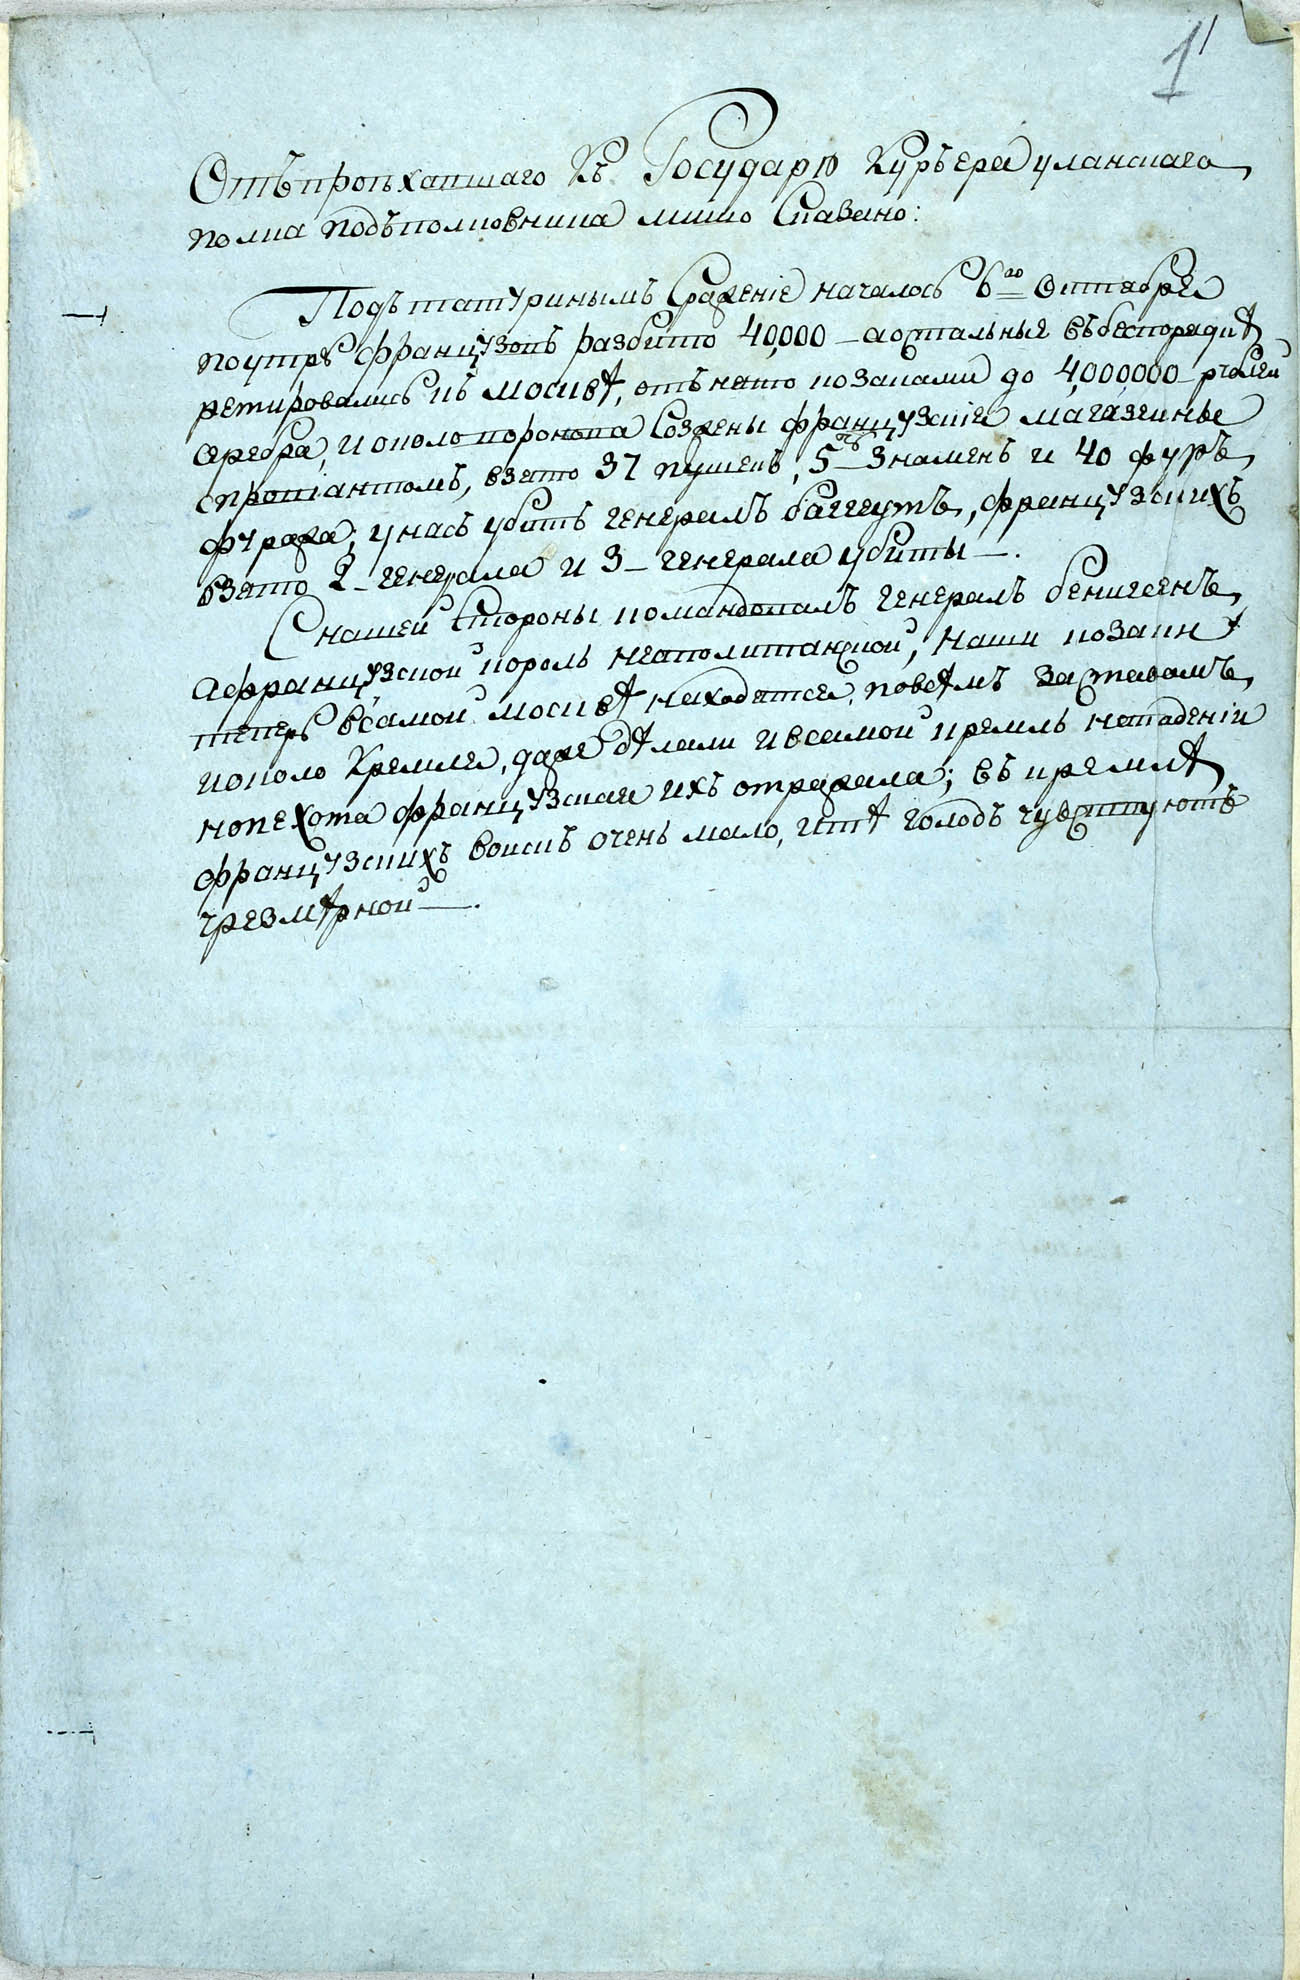 1
Отъ проѣхавшаго къ Государю Курьера уланскаго
полка подъполковника мило сказано:
Подъ татуринымъ сражение началось 6го октября
по утрѣ французовъ разбито 40,000 – а остальныя въ беспорядкѣ
ретировались къ москвѣ, отънято козаками до 4,000,000 рублей
серебра, и около воронова созжены французскія магазеины
с провіантомъ, взято 37 пушекъ, 5ть знаменъ и 40 фуръ
фуража, у насъ убитъ генералъ баггеутъ, французскихъ
взято 2 – генерала и 3 – генерала убиты –.
С нашей стороны командовалъ генералъ бенигсенъ,
а французской король неаполитанской, наши козаки
теперь в самой москвѣ находятся, по всѣмъ заставамъ,
и около Кремля, даже дѣлали и в самой кремль нападеніи
но пехота французская ихъ отражала; въ кремлѣ
французскихъ воискъ очень мало, и тѣ голодъ чувствуютъ
чрезмѣрной –.